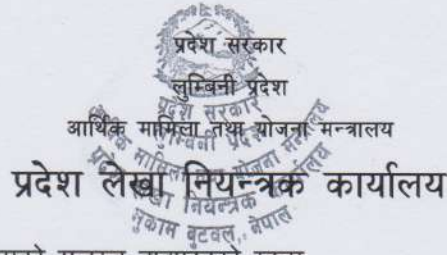 प्रदेश सरकार
लुम्बिनी प्रदेश
आर्थिक मामिला तथा योजना मन्त्रालय
प्रदेश लेखा नियन्त्रक कार्यालय
प्रदेश सरकार
लुम्बिनी प्रदेश
आर्थिक मामिला तथा योजना मन्त्रालय
प्रदेश लेखा नियन्त्रक कार्यालय
मुकाम बुटवल, नेपाल